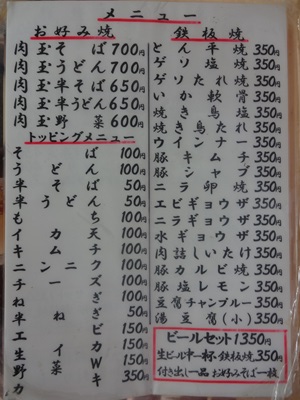 メニュー
お好み焼
肉玉そば 700円
肉玉うどん 700円
肉玉半そば 650円
肉玉半うどん 650円
肉玉野菜 600円
トッピングメニュー
そば 100円
うどん 100円
半そば 50円
半うどん 50円
もち 100円
イカ天 100円
キムチ 100円
ニンニク 100円
チーズ 100円
ねぎ 100円
半ねぎ 50円
エビ 150円
生イカ 150円
野菜W 150円
カキ 350円
鉄板焼
とん平焼 350円
ゲソ塩焼 350円
ゲソたれ焼 350円
いか軟骨 350円
焼き鳥塩 350円
焼き鳥たれ 350円
ウインナー 350円
豚キムチ 350円
豚シャブ 350円
ニラ卵焼 350円
エビギョウザ 350円
ニラギョウザ 350円
水ギョウザ 350円
肉詰しいたけ 350円
豚カルビ焼 350円
豚塩レモン 350円
豆腐チャンプルー 350円
湯豆腐(小) 350円
ビールセット1350円
生ビール中一杯・鉄板焼350円
付き出し一品 お好みそば一枚